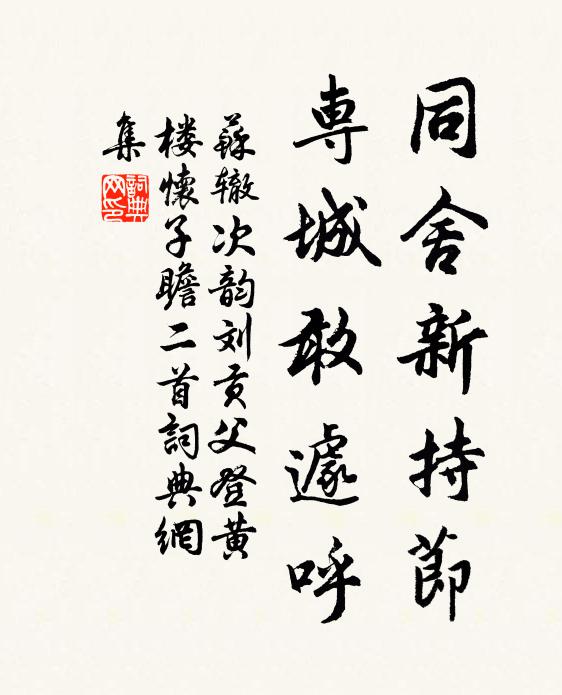 同舍新持節
専城敢遽呼
蘇辙次韵刘贡父登黄
楼懷子瞻二首詞典網
集
詞典
网印